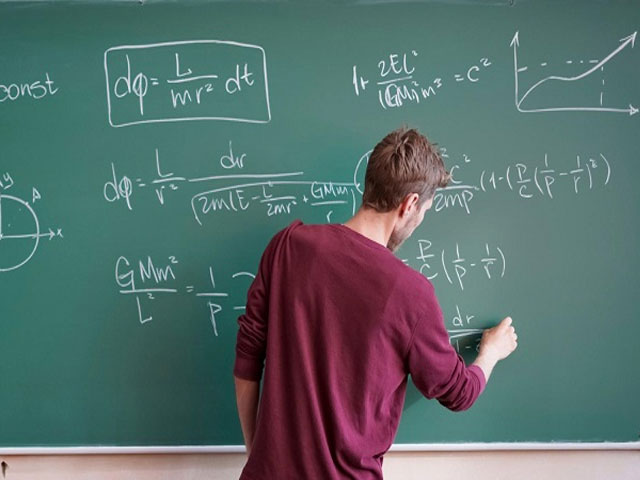 const
dφ = L/mr² dt
1 + 2EL²/(GMm)²m³ = c²
dφ = L/r² dr/√(2m(E - L²/2mr² + GMm/r
c²/2mp (1-(p/c (1/p - 1/r)²)
y
x
GMm²/L² = 1/p
= p/c (1/p - 1/r)
dr